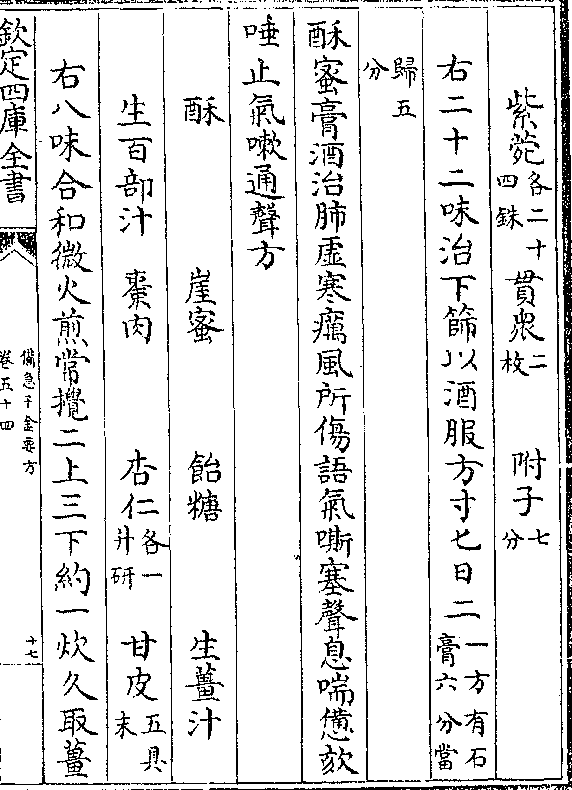 紫菀各二十四銖 貫衆二枚 附子七分
右二十二味治下篩以酒服方寸匕日二一方有石膏六分當
歸五分
酥蜜膏酒治肺虛寒癘風所傷語氣嘶塞聲息喘憊欬
唾止氣嗽通聲方
酥 崖蜜 飴糖 生薑汁
生百部汁 棗肉 杏仁各一升研 甘皮五具末
右八味合和微火煎常攪二上三下約一炊久取薑
欽定四庫全書
備急千金要方
卷五十四
十七